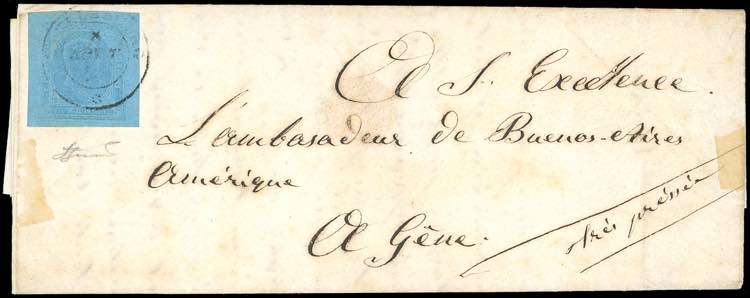 A S. Excellence.
L'ambasadeur de Buenos-Aires
Amérique
A Gêne.
très préssée